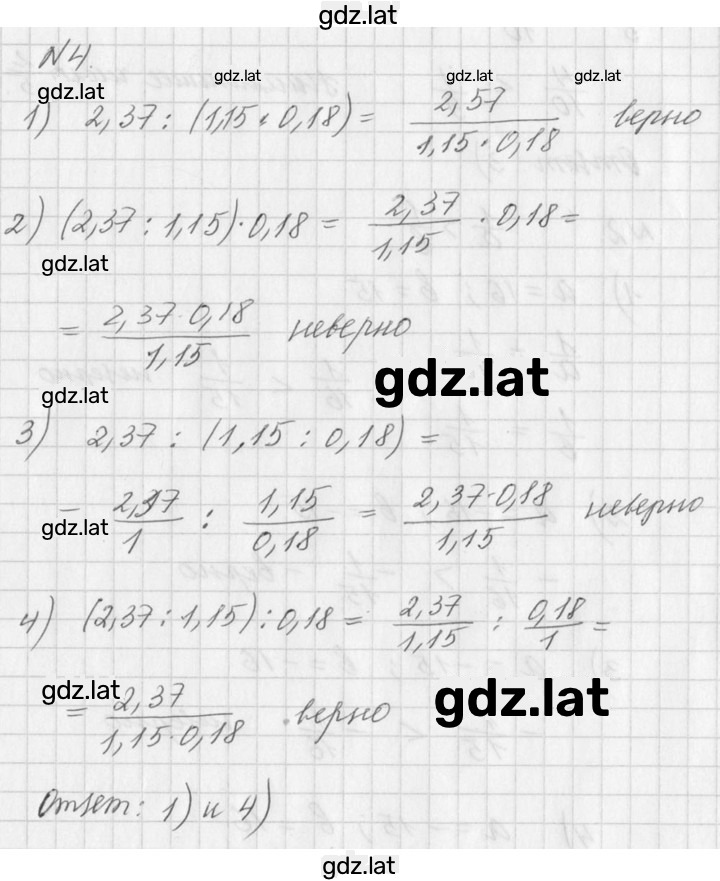 gdz.lat
N4.
gdz.lat gdz.lat gdz.lat
gdz.lat
1) 2,37 : (1,15 · 0,18) = 2,57 / 1,15 · 0,18 верно
2) (2,37 : 1,15) · 0,18 = 2,37 / 1,15 · 0,18 =
gdz.lat
= 2,37 · 0,18 / 1,15 неверно
gdz.lat
gdz.lat
3) 2,37 : (1,15 : 0,18) =
= 2,37 / 1 : 1,15 / 0,18 = 2,37 · 0,18 / 1,15 неверно
gdz.lat
4) (2,37 : 1,15) : 0,18 = 2,37 / 1,15 : 0,18 / 1 =
gdz.lat
gdz.lat
= 2,37 / 1,15 · 0,18 . верно
Ответ: 1) и 4)
gdz.lat